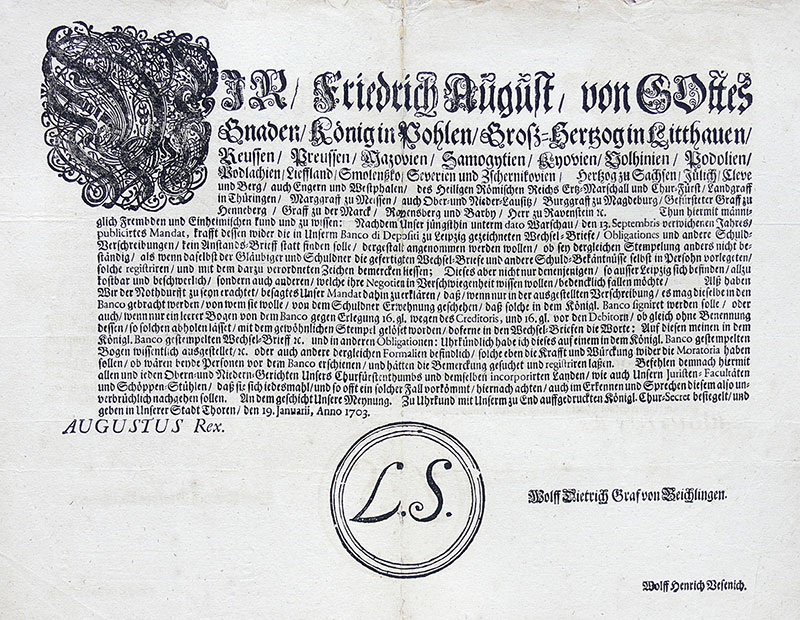 WIR/ Friedrich August/ von GOttes
Gnaden/ König in Pohlen/ Groß-Hertzog in Litthauen/
Reussen/ Preussen/ Mazovien/ Samogytien/ Kyovien/ Volhinien/ Podolien/
Podlachien/ Lieffland/ Smolenßko/ Severien und Zschernikovien/ Hertzog zu Sachsen/ Jülich/ Cleve
und Berg/ auch Engern und Westphalen/ des Heiligen Römischen Reichs Ertz-Marschall und Chur-Fürst/ Landgraff
in Thüringen/ Marggraff zu Meissen/ auch Ober- und Nieder-Laußitz/ Burggraff zu Magdeburg/ Gefürsteter Graff zu
Henneberg/ Graff zu der Marck/ Ravensberg und Barby/ Herr zu Ravenstein ꝛc. Thun hiermit männig-
lich Frembden und Einheimischen kund und zu wissen: Nachdem Unser jüngsthin unterm dato Warschau/ den 13. Septembris verwichenen Jahres/
publicirtes Mandat, krafft dessen wider die in Unserm Banco di Depositi zu Leipzig gezeichneten Wechsel-Briefe/ Obligationes und andere Schuld-
Verschreibungen/ kein Anstands-Brieff statt finden solle/ dergestalt angenommen werden wollen/ ob sey dergleichen Stempelung anders nicht be-
ständig/ als wenn daselbst der Gläubiger und Schuldner die gefertigten Wechsel-Briefe und andere Schuld-Bekäntnüße selbst in Persohn vorlegeten/
solche registriren/ und mit dem darzu verordneten Zeichen bemercken liessen; Dieses aber nicht nur denenjenigen/ so ausser Leipzig sich befinden/ allzu
kostbar und beschwerlich/ sondern auch anderen/ welche ihre Negotien in Verschwiegenheit wissen wollen/ bedencklich fallen möchte/ Alß haben
Wir der Nothdurfft zu seyn erachtet/ besagtes Unser Mandat dahin zu erklären/ daß/ wenn nur in der ausgestellten Verschreibung/ es mag dieselbe in den
Banco gebracht werden/ von wem sie wolle/ von dem Schuldner Erwehnung geschehen/ daß solche in dem Königl. Banco signiret werden solle/ oder
auch/ wenn nur ein leerer Bogen von dem Banco gegen Erlegung 16. gl. von dem Creditoris, und 16. gl. vor den Debitorn/ ob gleich ohne Benennung
dessen/ so solchen abholen lässet/ mit dem gewöhnlichen Stempel gelöset worden/ doferne in den Wechsel-Briefen die Worte: Auf diesen meinen in dem
Königl. Banco gestempelten Wechsel-Brieff ꝛc. und in anderen Obligationen: Uhrkündlich habe ich dieses auf einem in dem Königl. Banco gestempelten
Bogen wissentlich ausgestellet/ ꝛc. oder auch andere dergleichen Formalien befindlich/ solche eben die Krafft und Würckung wider die Moratoria haben
sollen/ ob wären beyde Personen vor dem Banco erschienen/ und hätten die Bemerckung gesucht und registriren laßen. Befehlen demnach hiermit
allen und ieden Obern- und Niedern-Gerichten Unsers Churfürstenthumbs und demselben incorporirten Landen/ wie auch Unsern Juristen-Facultäten
und Schöppen-Stühlen/ daß sie sich iedesmahl/ und so offt ein solcher Fall vorkömmt/ hiernach achten/ auch im Erkennen und Sprechen diesem also un-
verbrüchlich nachgehen sollen. An dem geschicht Unsere Meynung. Zu Uhrkund mit Unserm zu End auffgedruckten Königl. Chur-Secret besiegelt/ und
geben in Unserer Stadt Thoren/ den 19. Januarii, Anno 1703.
AUGUSTUS Rex.
L.S.
Wolff Dietrich Graf von Beichlingen.
Wolff Henrich Vesenich.